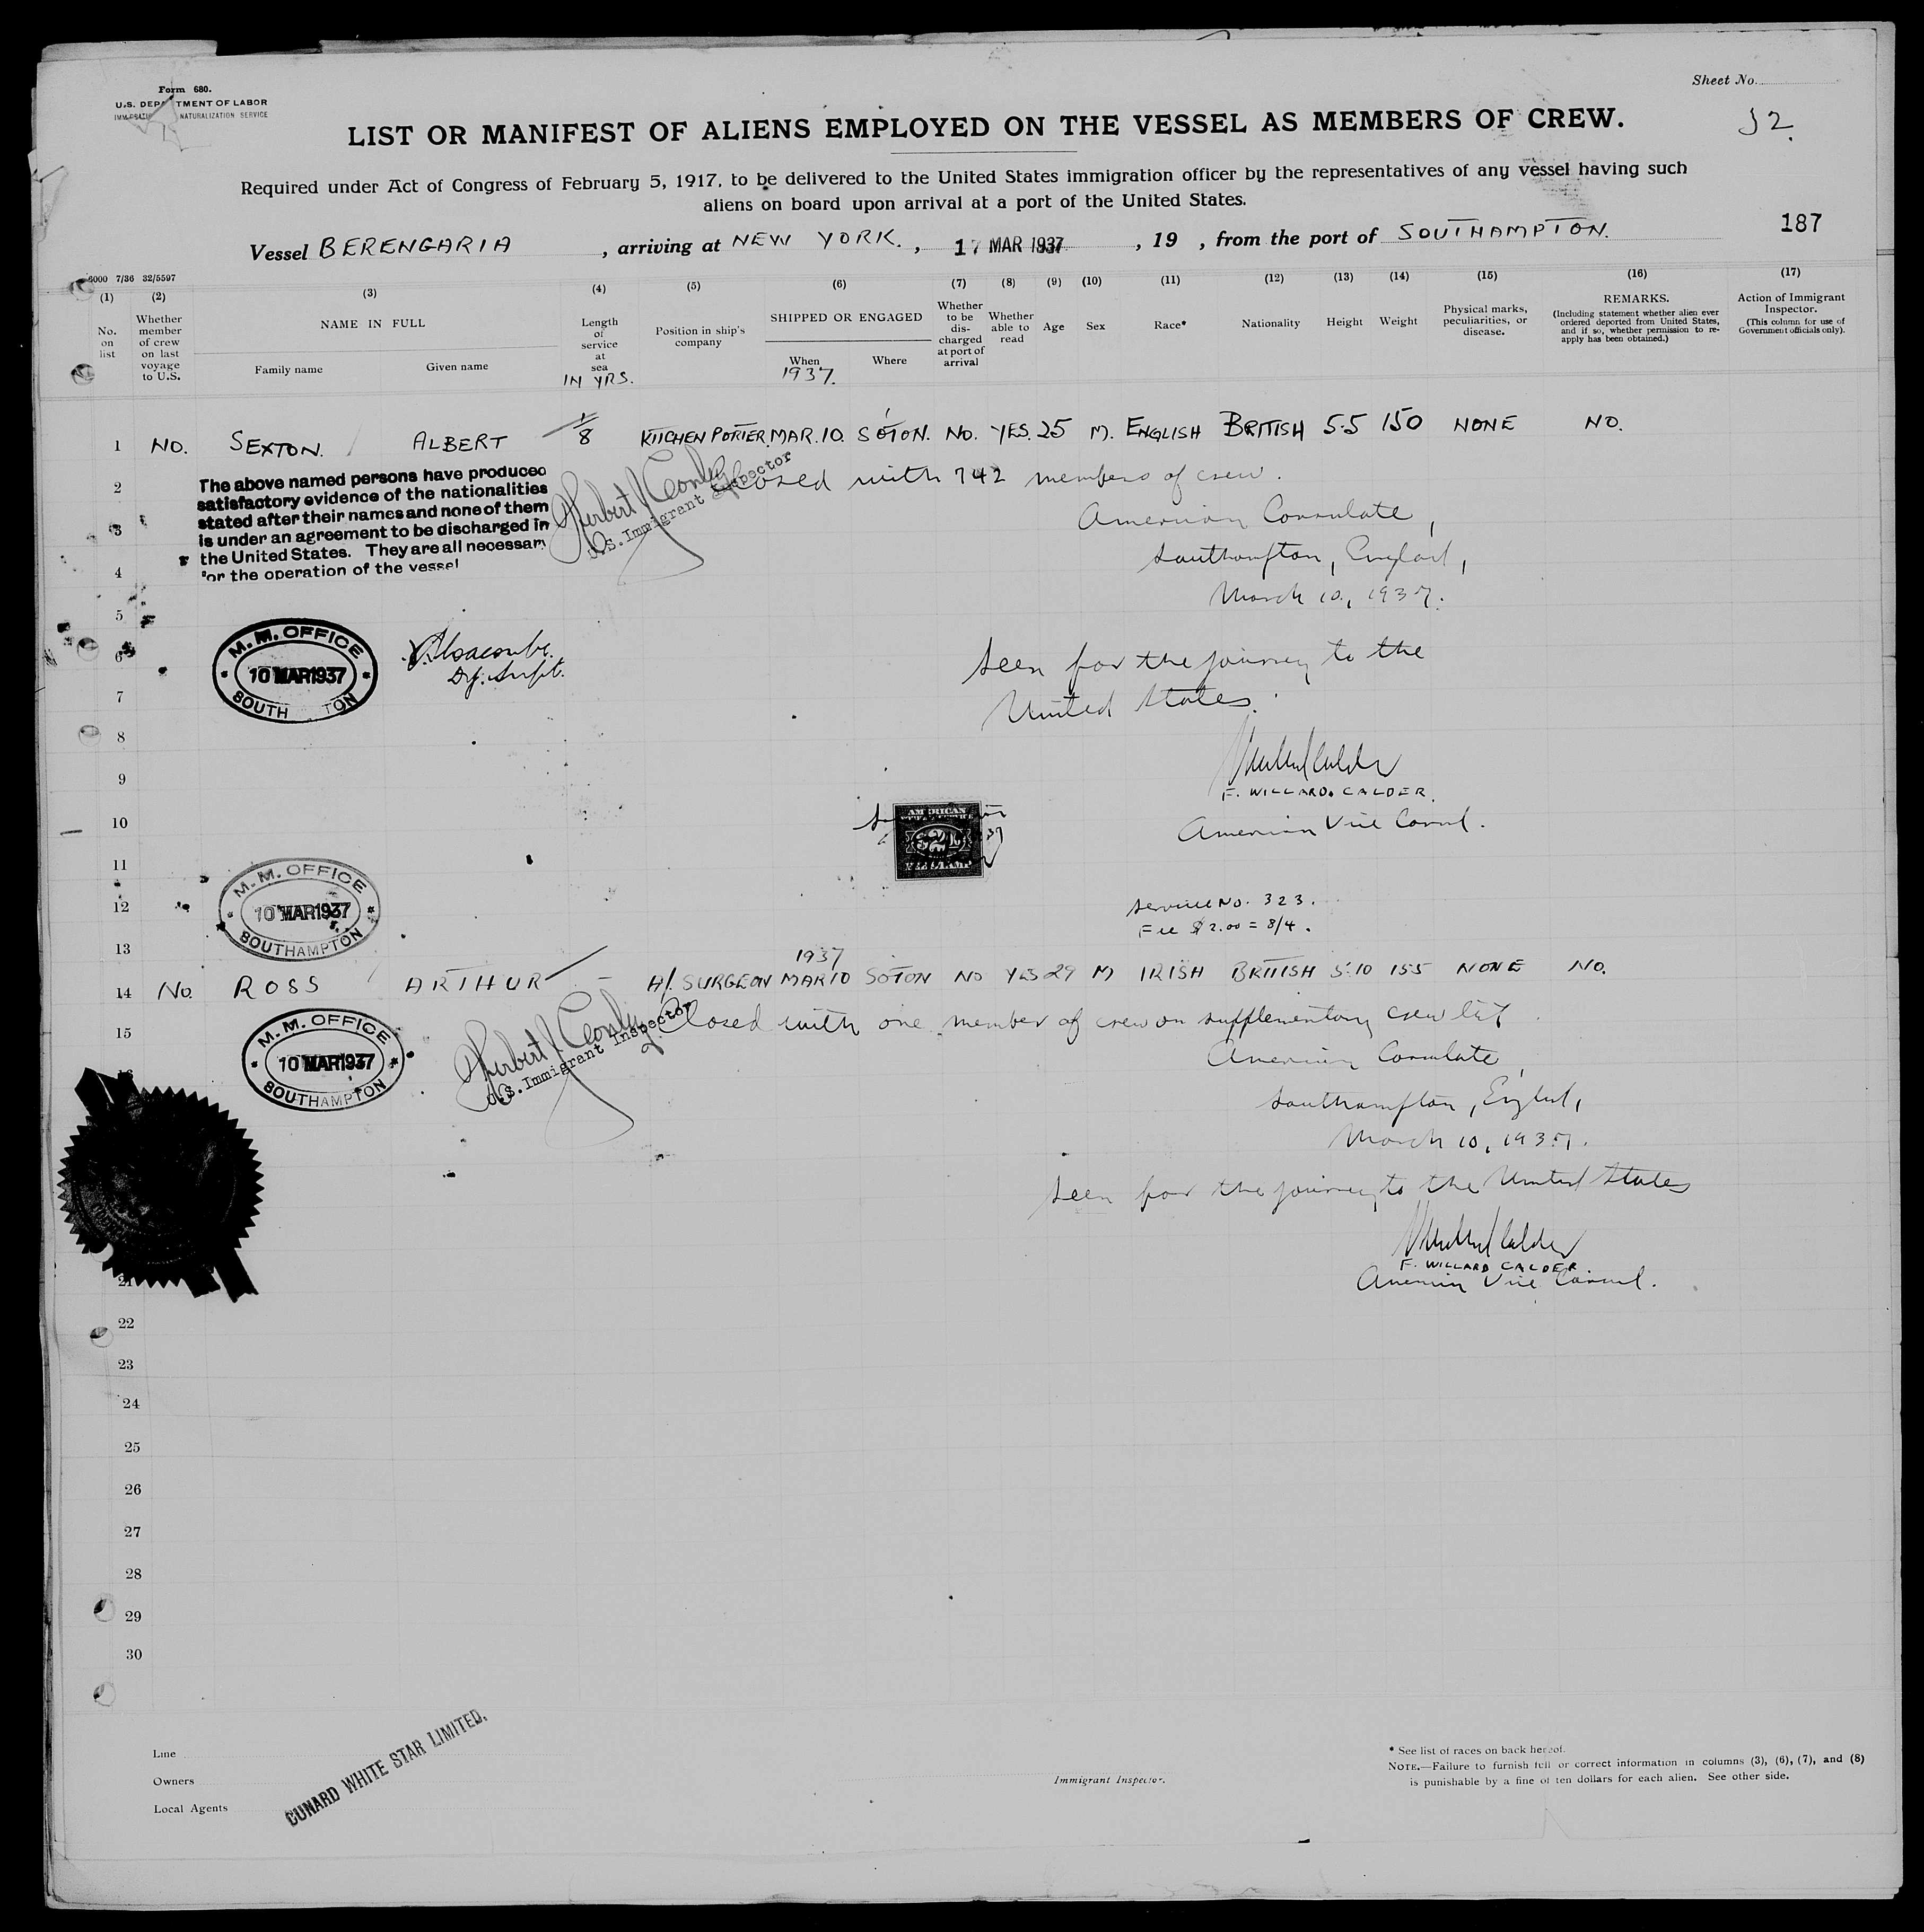 Form 680.
U.S. DEPARTMENT OF LABOR
IMMIGRATION NATURALIZATION SERVICE
Sheet No.
52.
LIST OR MANIFEST OF ALIENS EMPLOYED ON THE VESSEL AS MEMBERS OF CREW.
Required under Act of Congress of February 5, 1917, to be delivered to the United States immigration officer by the representatives of any vessel having such
aliens on board upon arrival at a port of the United States.
187
Vessel BERENGARIA, arriving at NEW YORK., 17 MAR 1937, 19 , from the port of SOUTHAMPTON.
6000 7/36 32/5597
(1) (2) (3) (4) (5) (6) (7) (8) (9) (10) (11) (12) (13) (14) (15) (16) (17)
No. on list
Whether member of crew on last voyage to U.S.
NAME IN FULL
Family name
Given name
Length of service at sea
IN YRS.
Position in ship's company
SHIPPED OR ENGAGED
When
1937.
Where
Whether to be discharged at port of arrival
Whether able to read
Age
Sex
Race*
Nationality
Height
Weight
Physical marks, peculiarities, or disease.
REMARKS.
(Including statement whether alien ever ordered deported from United States, and if so, whether permission to reapply has been obtained.)
Action of Immigrant Inspector.
(This column for use of Government officials only).
1 NO. SEXTON. ALBERT 1/8 KITCHEN PORTER. MAR. 10. SOTON. No. YES. 25 M. ENGLISH BRITISH 5.5 150 NONE NO.
2 Closed with 742 members of crew.
The above named persons have produced
satisfactory evidence of the nationalities
stated after their names and none of them
is under an agreement to be discharged in
the United States. They are all necessary
for the operation of the vessel
U.S. Immigrant Inspector
3 American Consulate,
4 Southampton, England,
5 March 10, 1937.
M. M. OFFICE
10 MAR 1937
SOUTH TON
6 Seen for the journey to the
7 United States.
8
9 F. WILLARD CALDER.
10 American Vice Consul.
AMERICAN
$2
FEE STAMP
11
M. M. OFFICE
10 MAR 1937
SOUTHAMPTON
12 Service No. 323.
Fee $2.00 = 8/4.
13 1937
14 No. ROSS ARTHUR – A/. SURGEON MAR 10 SOTON NO YES 29 M IRISH BRITISH 5.10 155 NONE NO.
15 Closed with one member of crew on supplementary crew list.
U.S. Immigrant Inspector
M. M. OFFICE
10 MAR 1937
SOUTHAMPTON
American Consulate,
Southampton, England,
March 10, 1937.
Seen for the journey to the United States
F. WILLARD CALDER
21 American Vice Consul.
22
23
24
25
26
27
28
29
30
Line
Owners
Local Agents
CUNARD WHITE STAR LIMITED.
Immigrant Inspector.
* See list of races on back hereof.
NOTE.—Failure to furnish full or correct information in columns (3), (6), (7), and (8)
is punishable by a fine of ten dollars for each alien. See other side.